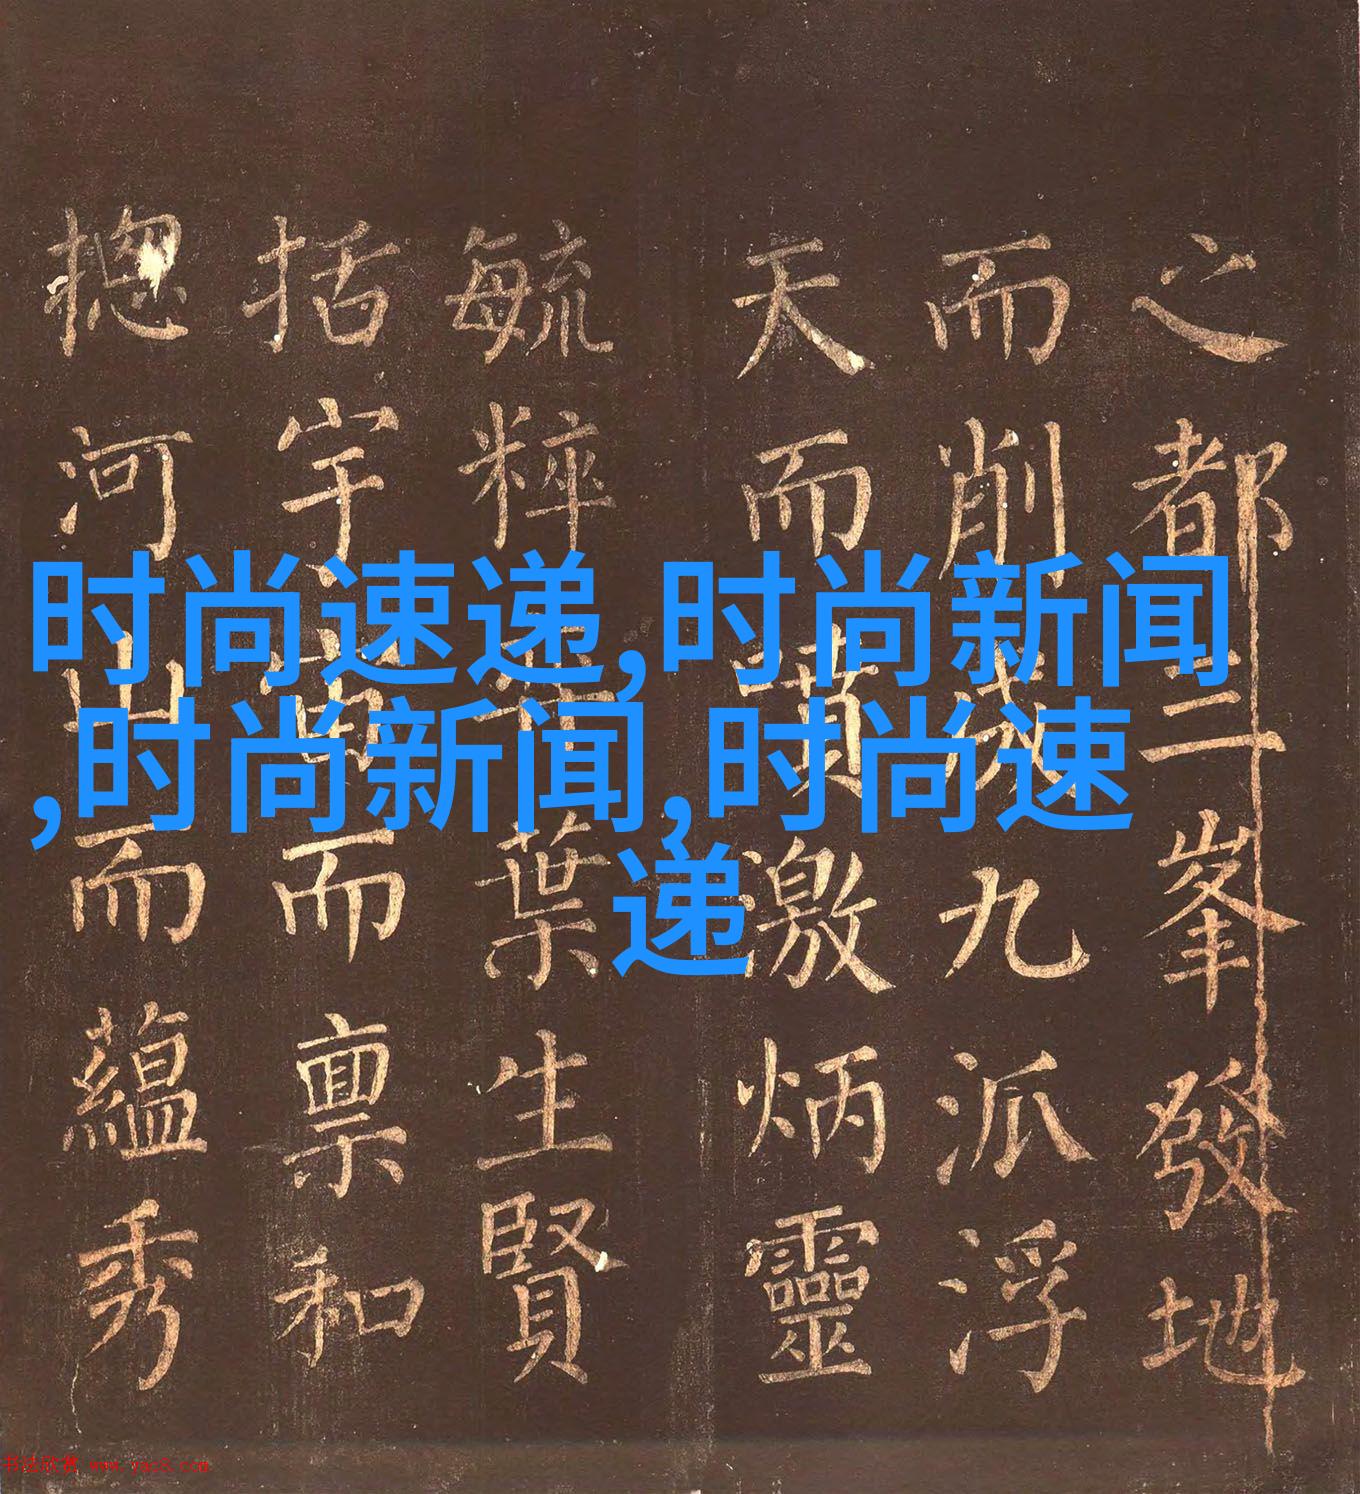 之都三峯發地
而削成九派浮
天而噴激炳靈
毓粹 葉生賢
括宇宙而禀和
揔河山而蘊秀
时尚速递,时尚新闻
,时尚新闻,时尚速
递
书法欣赏 www.yac8.com